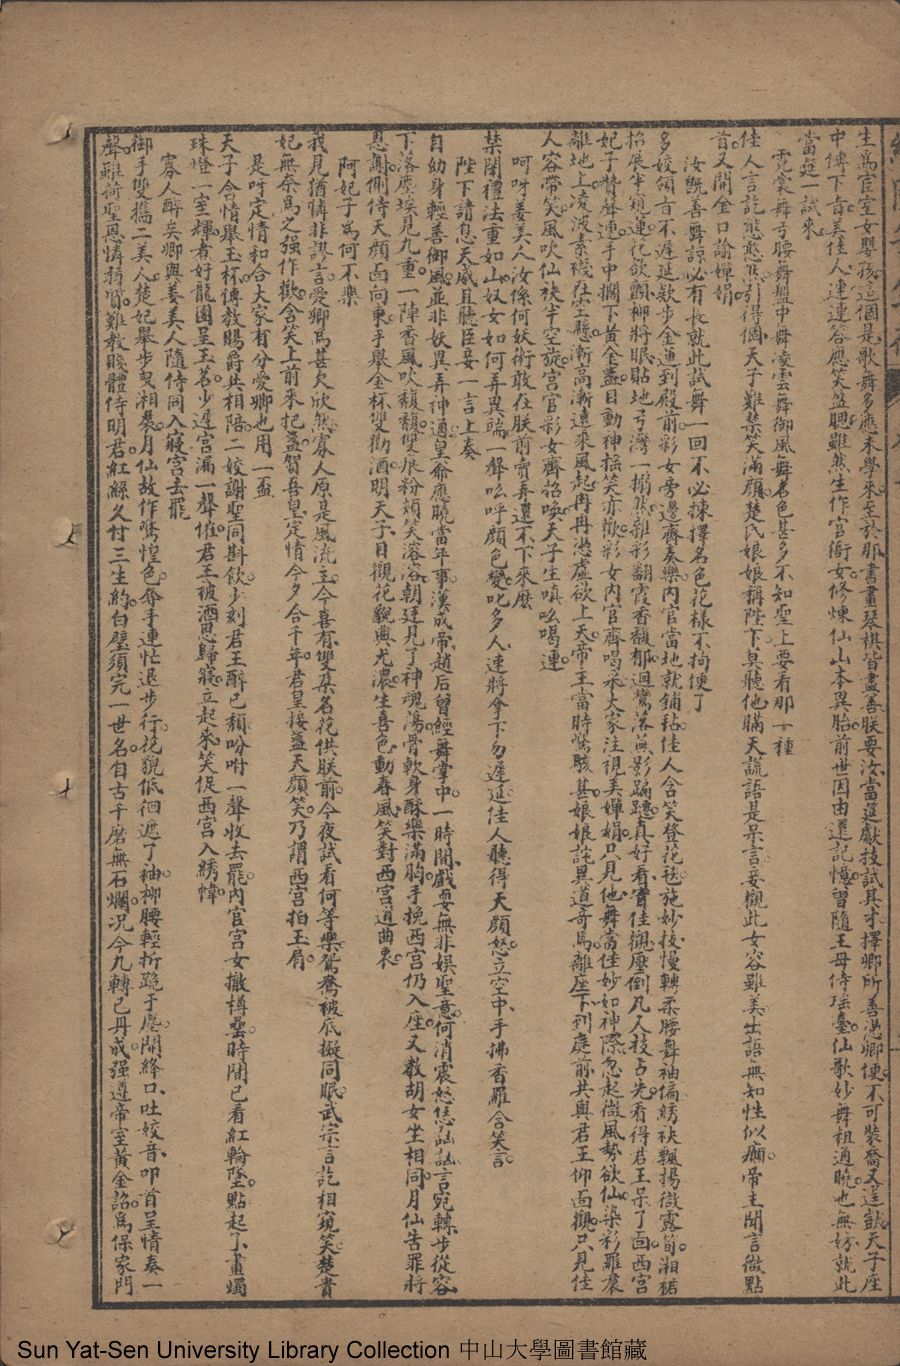 生爲官室女嬰孩這個是歌舞多應未學來至於那書畫琴棋皆盡善朕要汝當筵獻技試其才擇卿所善憑卿便不可裝喬又逞獃天子座
中傳下旨美佳人連連答應笑盈腮雖然生作官衙女修煉仙山本異胎前世因由還記憶曾隨王母侍瑤臺仙歌妙舞祖通曉也無妨就此
當筵一試來
霓裳舞弓腰舞盤中舞凌雲舞御風舞名色甚多不知聖上要看那一種
佳人言訖態憨憨引得個天子難禁笑滿顏楚氏娘娘稱陛下臭聽他瞞天謊語是呆言妾觀此女容雖美出語無知性似癲帝主聞言微點
首又開金口諭嬋娟
汝既善舞諒必有妝就此試舞一回不必揀擇名色花樣不拘便了
多姣領旨不遲延欵步金蓮到殿前彩女旁邊齊奏樂內官當地就鋪毡佳人含笑登花毯施妙技慢轉柔腰舞袖偏綉袂飄揚微露筍湘裙
招展半窺蓮花欲顫柳將眠貼地弓灣一搦然雜彩翻霞香馥郁迴鸞落燕影蹁躚真好看實佳觀壓倒凡人技占先看得君王呆了面西宮
妃子贊聲連手中擱下黃金盞目動神搖笑亦歡彩女內官齊喝采大家注視美嬋娟只見他舞當佳妙如神際忽起微風勢欲仙染彩羅裳
離地上凌波素襪在空懸漸高漸遠來風起冉冉憑虛欲上天帝王當時驚駭甚娘娘詫異道奇焉離座下到庭前共與君王仰面觀只見佳
人容帶笑風吹仙袂半空旋宮官彩女齊招喚天子生嗔吆喝連
呵呀姜美人汝係何妖術敢在朕前賣弄還不下來麼
禁闈禮法重如山奴女如何弄異端一聲吆呼顏色變叱多人速將拿下勿遲延佳人聽得天顏怒立空中手拂香羅含笑言
陛下請息天威且聽臣妾一言上奏
自幼身輕善御風並非妖異弄神通皇爺應曉當年事漢成帝趙后曾經舞掌中一時間戲耍無非娛聖意何消震怒恁訩訩言宛轉步從容
下落塵埃見九重一陣香風吹馥馥雙痕粉頰笑溶溶朝廷見了神魂蕩骨軟身酥樂滿胸手挽西宮仍入座又教胡女坐相同月仙告罪將
恩謝側侍天顏面向東手舉金杯雙勸酒明天子目觀花貌興尤濃生喜色動春風笑對西宮道曲衷
阿妃子爲何不樂
我見猶憐非謬言愛卿爲甚欠欣然寡人原是風流主今喜有雙朶名花供朕前今夜試看何等樂鴛鴦被底擬同眠武宗言訖相窺笑楚貴
妃無奈爲之强作歡含笑上前來把盞賀吾皇定情今夕合千年君皇接盞天顏笑乃謂西宮拍玉肩
是呀定情和合大家有分愛卿也用一盃
天子含情舉玉杯傳教賜爵共相陪二姣謝聖同斟飲少刻君王醉已頹吩咐一聲收去罷內官宮女撤樽罍時間已看紅輪墜點起了畫燭
珠燈一室輝煮好龍團呈玉茗少遲宮漏一聲催君王被酒思歸寢立起來笑促西宮入綉幃
寡人醉矣卿與姜美人隨侍同入寢宮去罷
御手雙攜二美人楚妃舉步曳湘裠月仙故作驚惶色奪手連忙退步行花貌低徊遮了袖柳腰輕折跪于塵開絳口吐姣音叩首呈情奏一
聲雖荷聖恩憐弱質難教賤體侍明君紅絲久付三生約白璧須完一世名自古千磨無石爛况今九轉已丹成强遵帝室黃金詔爲保家門
Sun Yat-Sen University Library Collection 中山大學圖書館藏